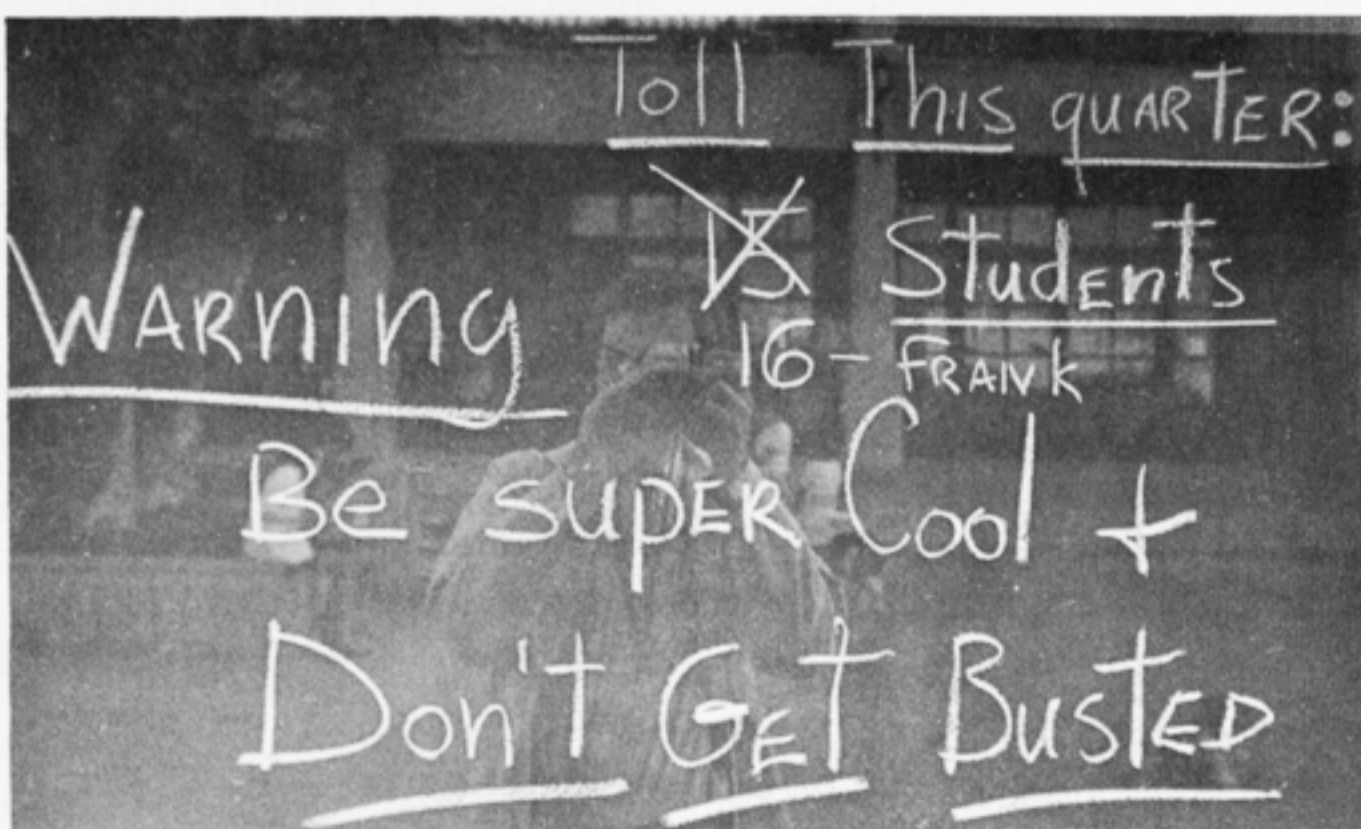 Toll This quarter:
15 Students
Warning
16 - Frank
Be super Cool +
Don't Get Busted